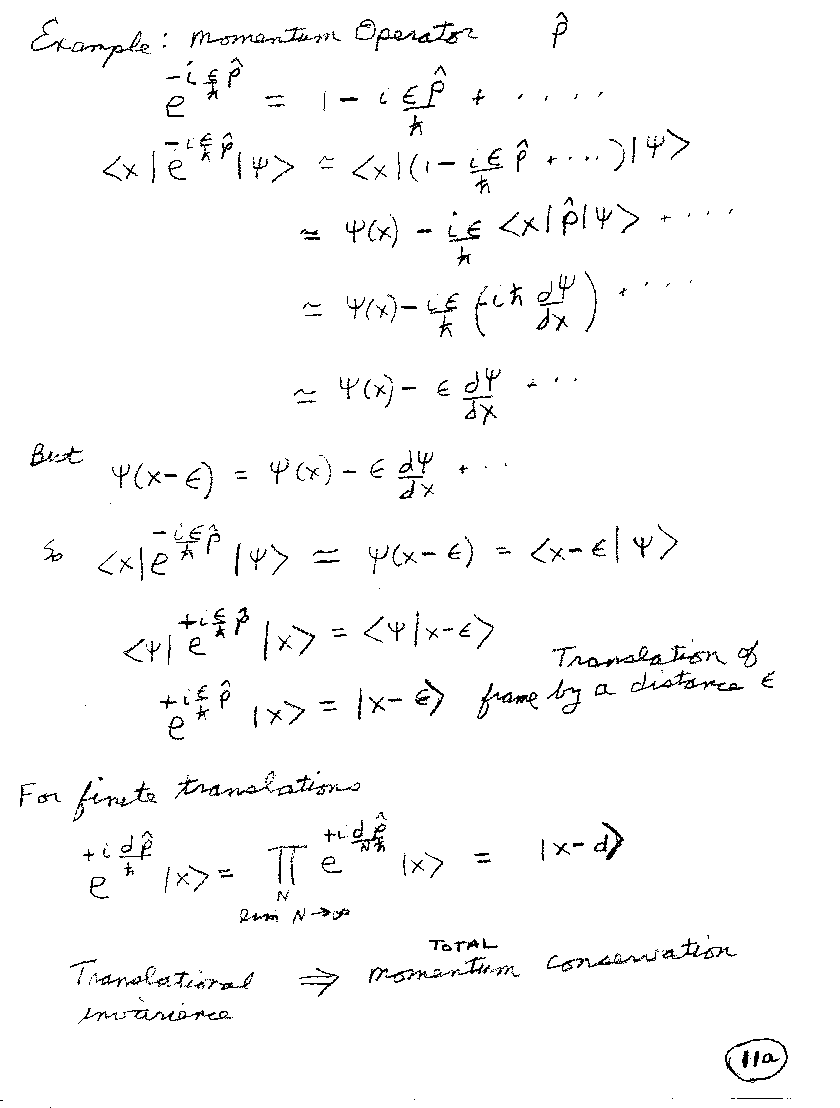 Example: Momentum Operator p̂
e^{-i ε/ħ p̂} = 1 - i εp̂/ħ + .....
<x|e^{-iε/ħ p̂}|ψ> ≃ <x|(1 - iε/ħ p̂ + ...)|ψ>
≃ ψ(x) - iε/ħ <x|p̂|ψ> + ....
≃ ψ(x) - iε/ħ (-iħ dψ/dx) + ....
≃ ψ(x) - ε dψ/dx + ...
But ψ(x-ε) = ψ(x) - ε dψ/dx + ...
So <x|e^{-iε/ħ p̂}|ψ> ≃ ψ(x-ε) = <x-ε|ψ>
<ψ|e^{+iε/ħ p̂}|x> = <ψ|x-ε>
e^{+iε/ħ p̂}|x> = |x-ε> Translation of
frame by a distance ε
For finite translations
e^{+i dp̂/ħ}|x> = ∏_N e^{+i dp̂/Nħ}|x> = |x-d>
lim N→∞
Translational ⇒ TOTAL momentum conservation
invarience
11a